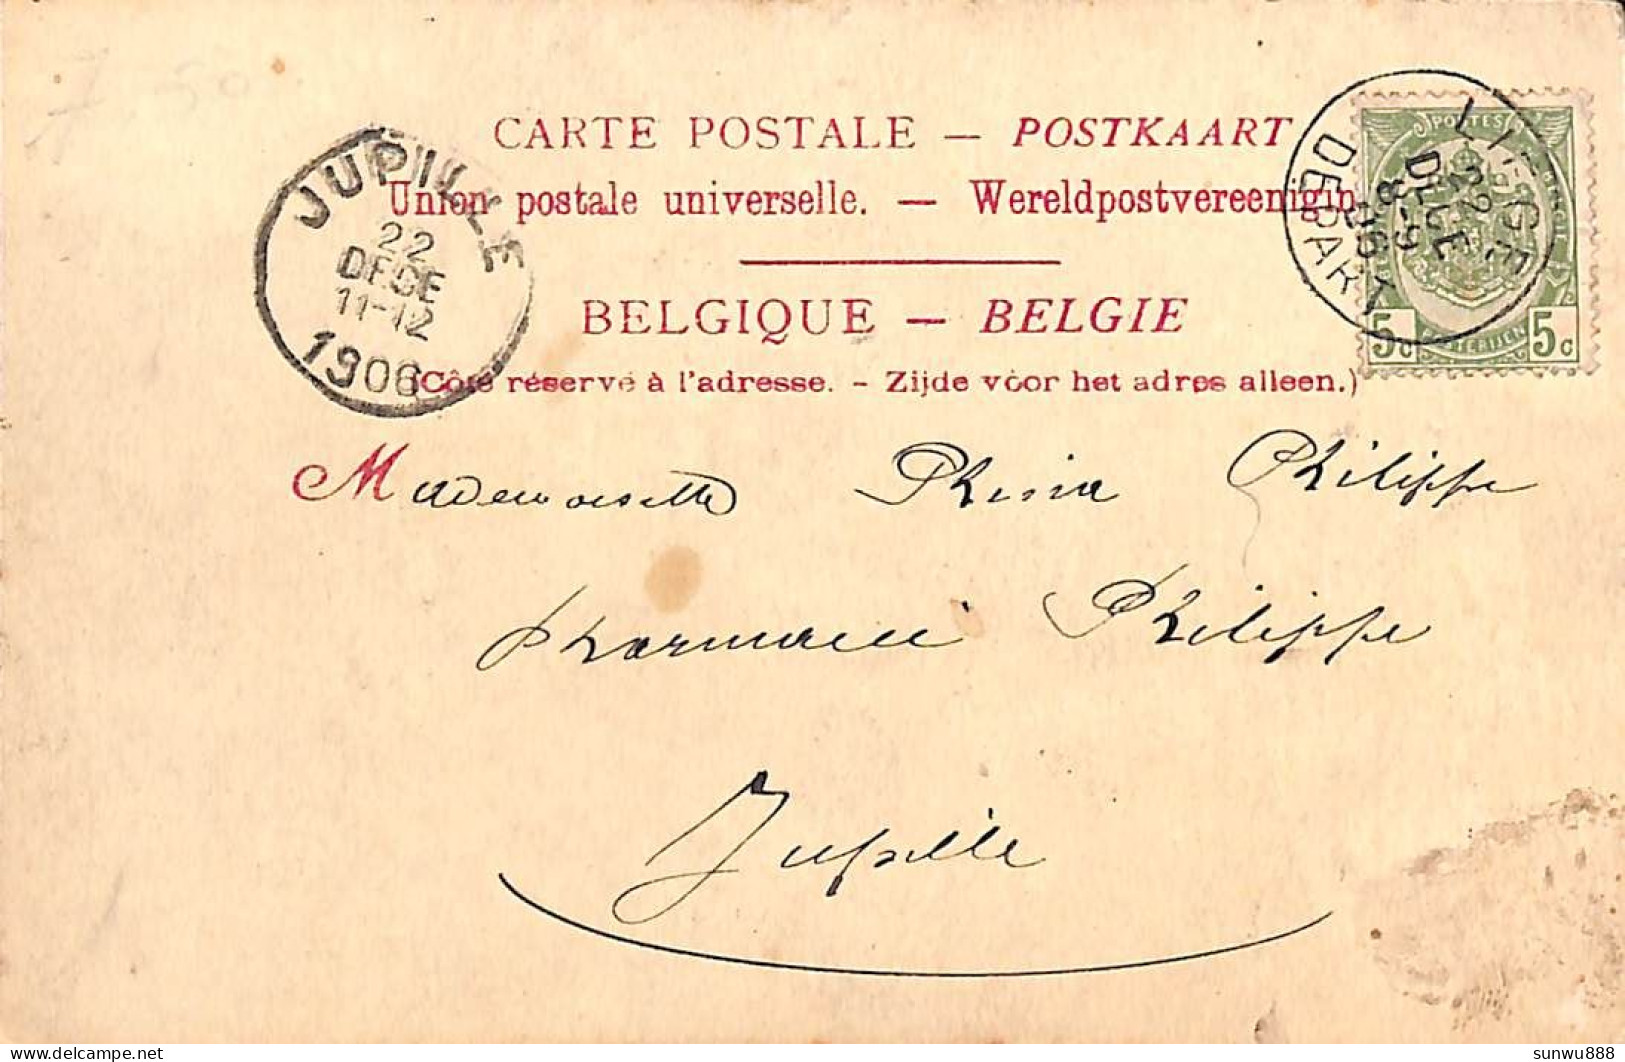 CARTE POSTALE — POSTKAART
Union postale universelle. — Wereldpostvereenigin
BELGIQUE — BELGIE
(Côté réservé à l'adresse. - Zijde vóor het adres alleen.)
JUPILLE
22
DECE
11-12
1906
LIEGE
22
DECE
8-9
06
DEPART
POSTES
POSTERIJEN
5c 5c
Mademoiselle Philippe
Pharmacie Philippe
Jupille
delcampe.net
sunwu888